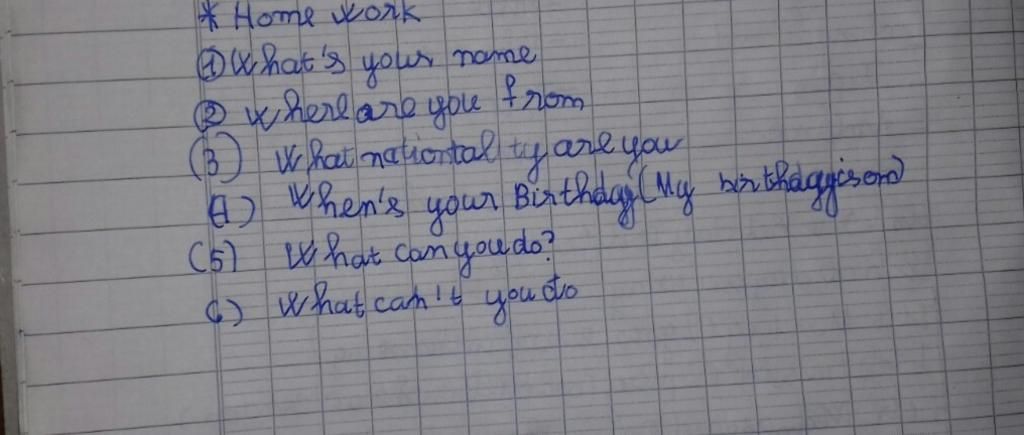 * Home work
① What's your name
② Where are you from
(3) What nationtality are you
4) When's your Birthday (My birthdayyis on)
(5) What can you do?
6) What can't you do